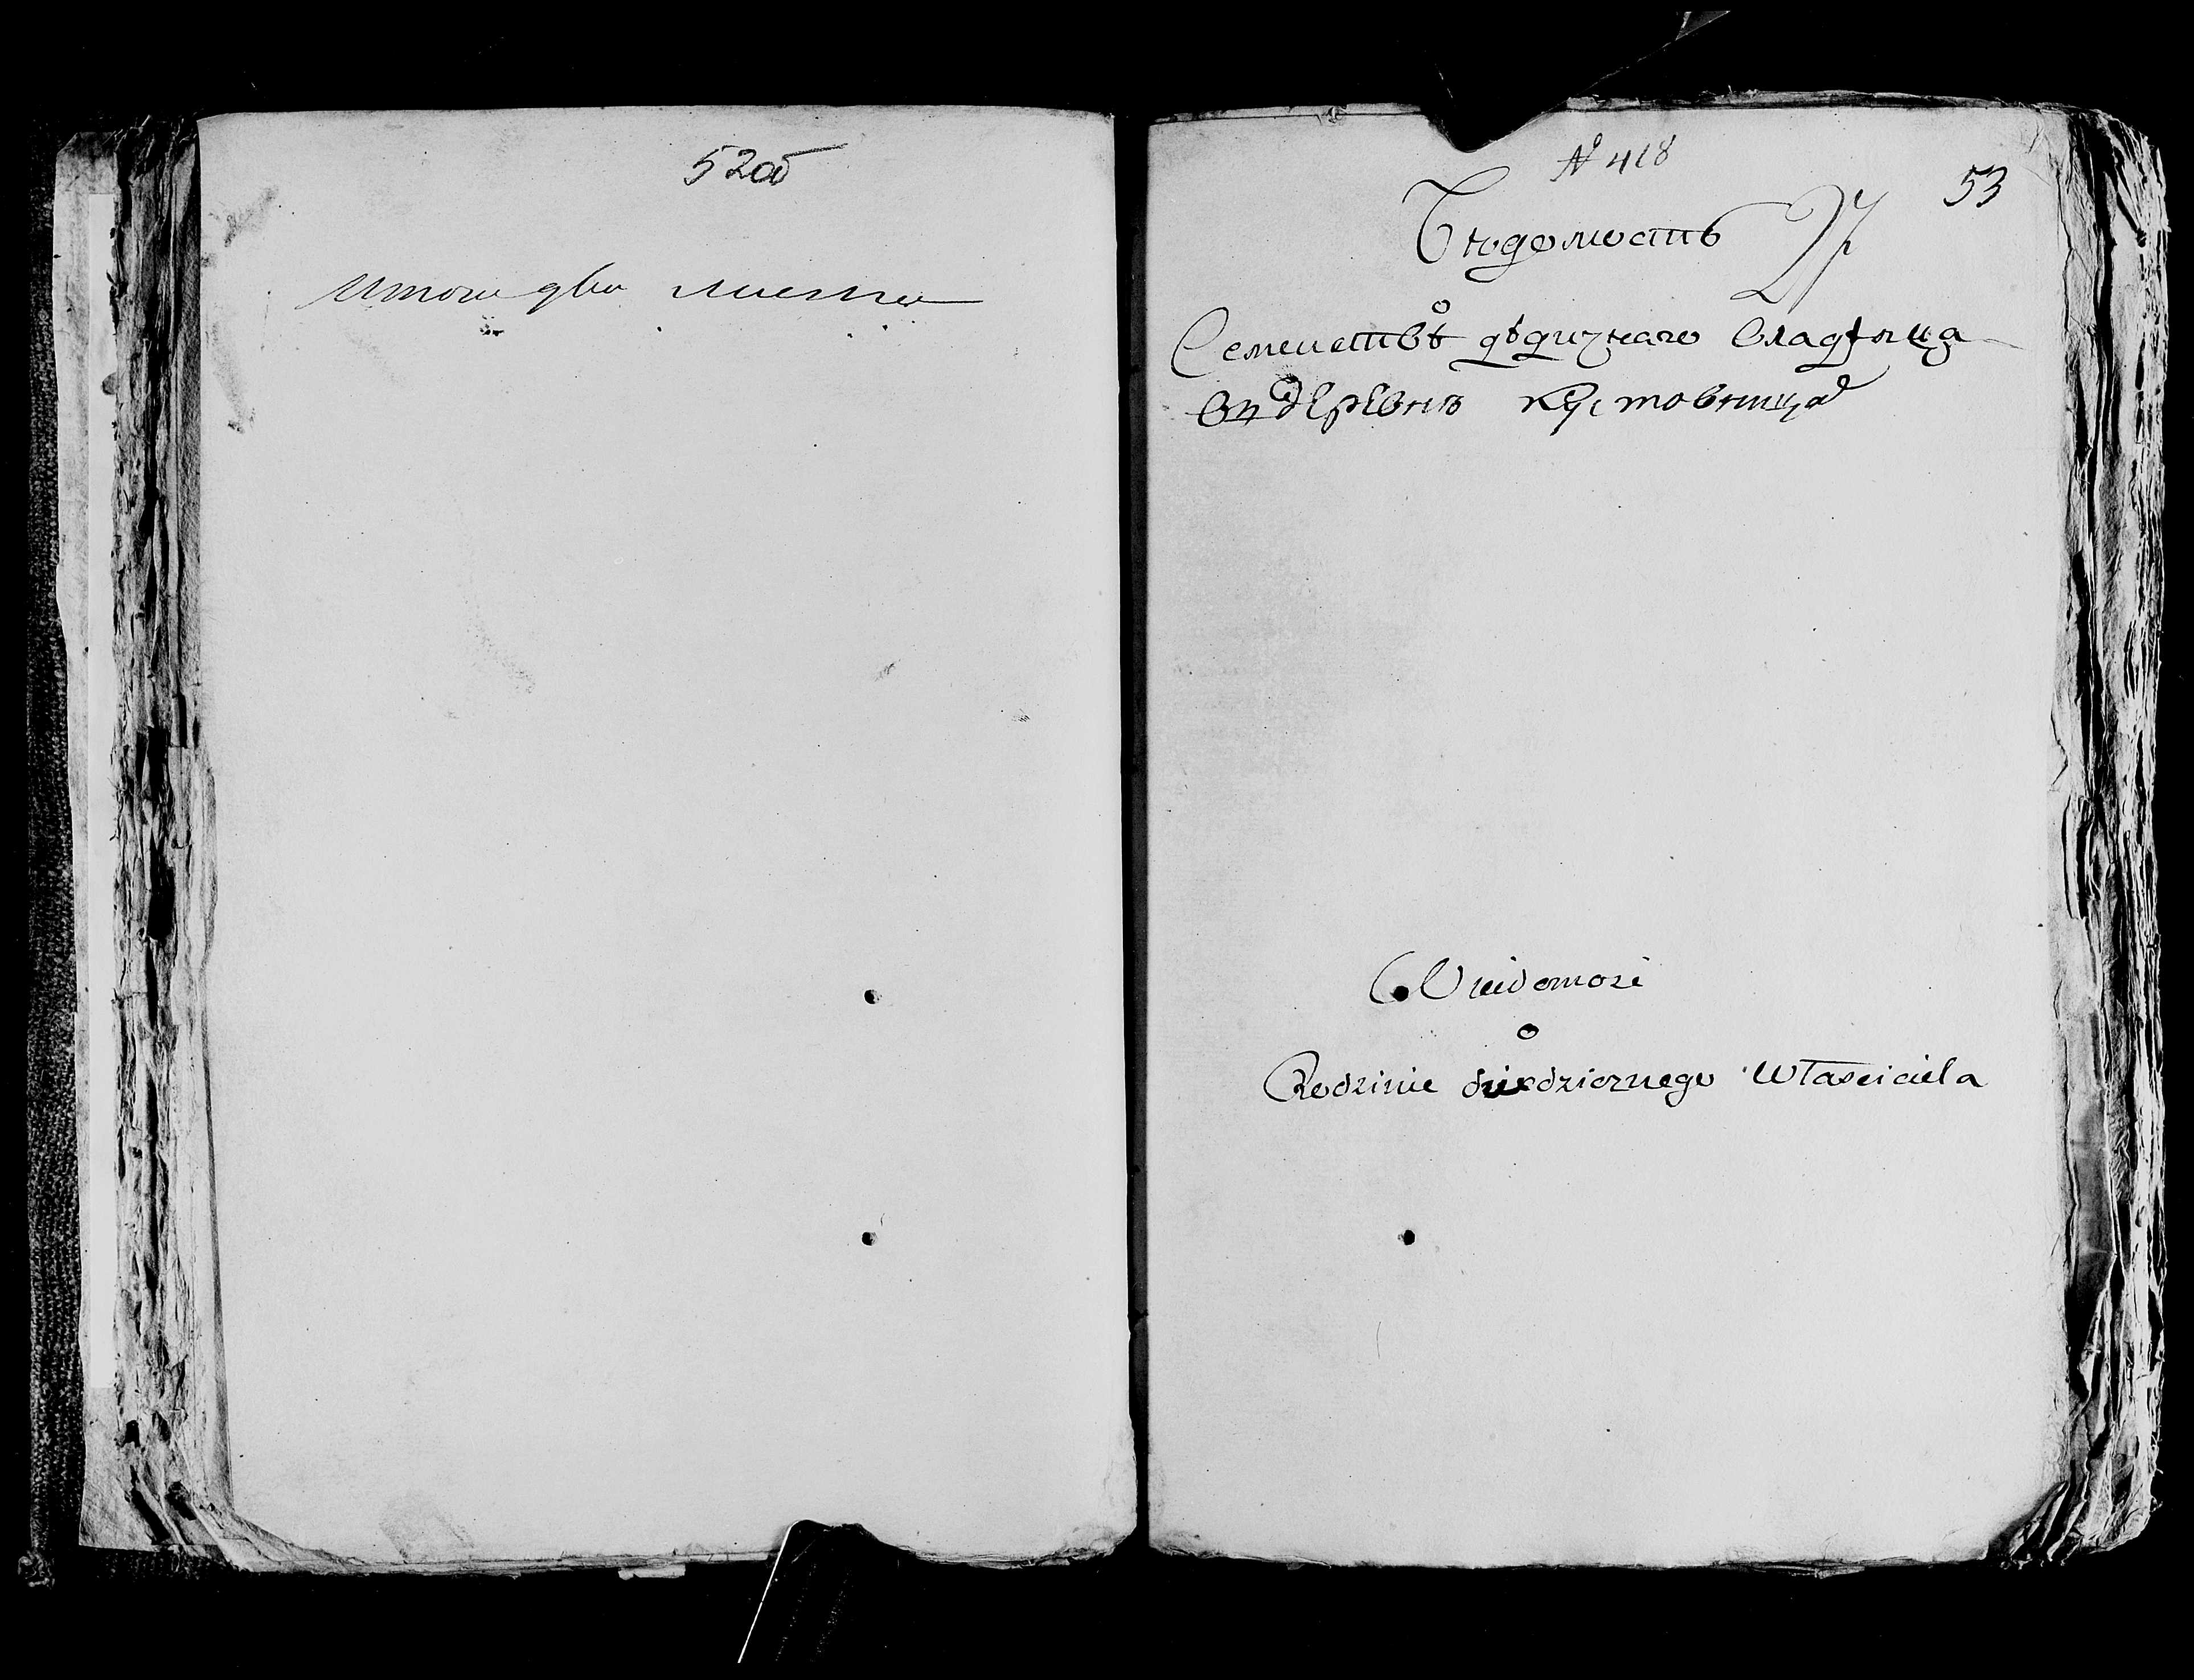 52об
Итого два листа
№ 418
53
Вѣдомость
27
о
Семействѣ дѣдизнаго владѣлца
въ деревнѣ Кустовница
Wiadomość
o
Rodzinie dziedzicznego Właściciela